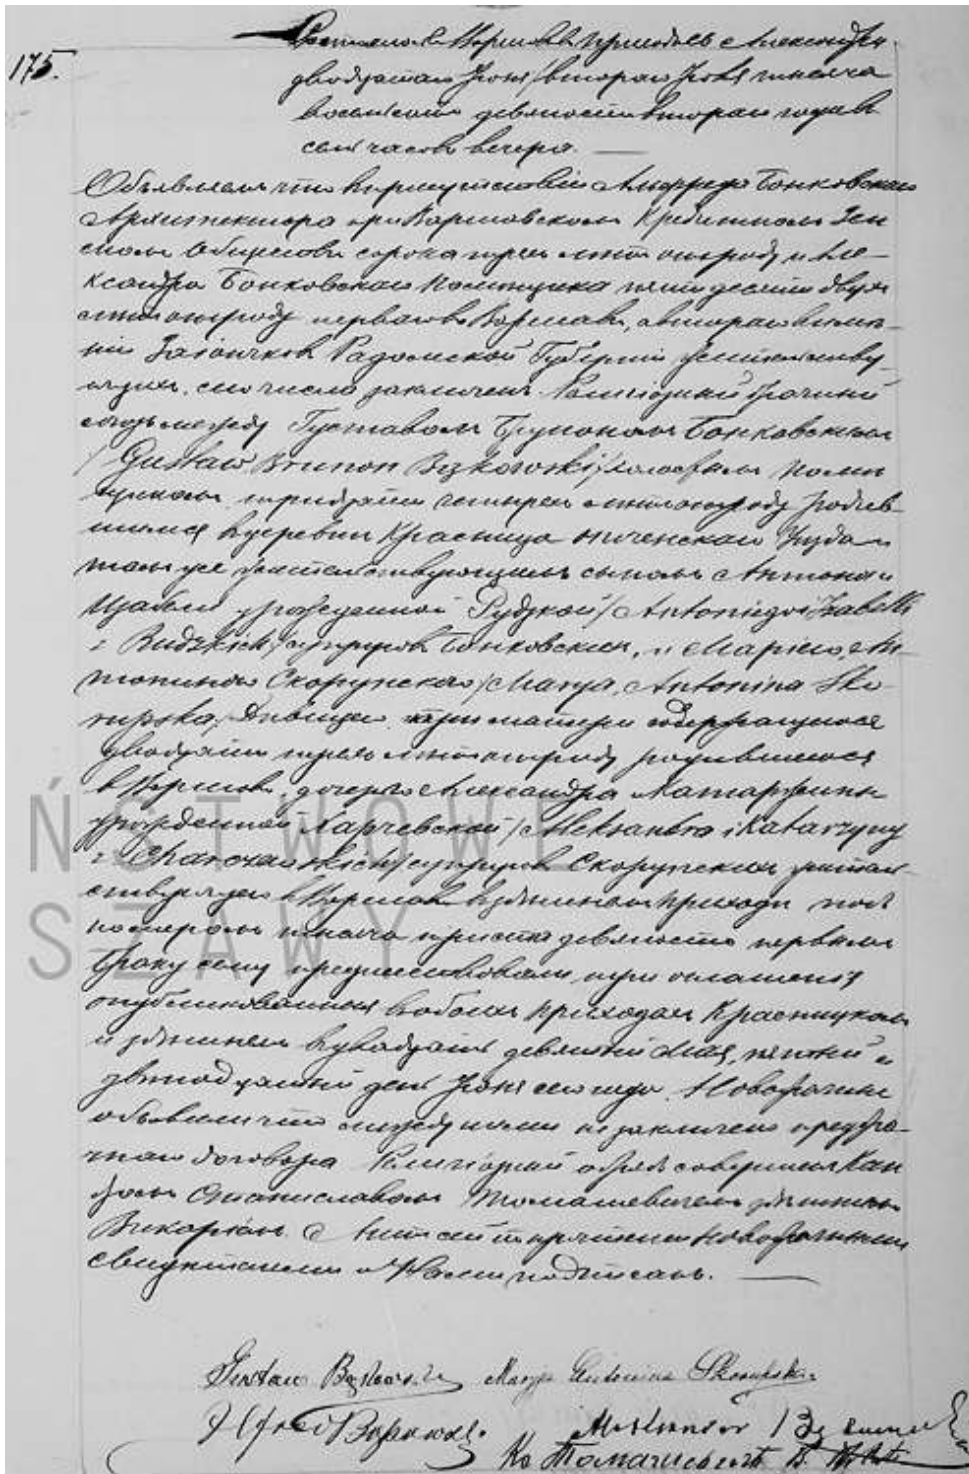 175.
Состоялось в Варшаве в приходе св. Александра
двадцатаго Іюня / втораго Іюля тысяча
восемьсотъ девяносто втораго года въ
семь часовъ вечера.
Объявляемъ что въ присутствіи Альфреда Бонковскаго
Архитектора при Варшавскомъ Кредитномъ Зем
скомъ Обществе сорока трехъ летъ отъ роду и Але-
ксандра Бонковскаго Помещика пятидесяти двухъ
летъ отъ роду перваго въ Варшаве, а втораго въ име-
ніи Радомской Губерніи жительству-
ющихъ, сего числа заключенъ Религіозный брачный
союзъ между Густавомъ Бруномъ Бонковскимъ
/ Gustaw Brunon Bąkowski / холостымъ поме
щикомъ тридцати четырехъ летъ отъ роду родив-
шимся въ деревни Красница Уезда и
тамъ же жительствующимъ сыномъ Антона и
Изабели урожденной Рудзкой / Antoniego i Izabelli
z Rudzkich / супруговъ Бонковскихъ, и Маріею Ан-
тониною Скорупскою / Marya, Antonina Sko-
rupska / девицею при матери содержащеюся
двадцати трехъ летъ отъ роду родившеюся
въ Варшаве, дочерью Александра Катаржины
урожденной Харчевской / Aleksandra i Katarzyny
z Charczewskich / супруговъ Скорупскихъ жительст-
ствующею въ Варшаве въ здешнемъ приходе подъ
номеромъ тысяча триста девяносто первымъ
Браку сему предшествовали три оглашенія
опубликованныя въ обоихъ приходахъ Красницкомъ
и здешнемъ въ двадцать девятый Мая, пятый и
двенадцатый день Іюня сего года. Новобрачные
объявили что между ними не заключено предбра-
чнаго договора Религіозный обрядъ совершенъ Ксен
дзомъ Станиславомъ Томашевичемъ здешнимъ
Викаріемъ. Актъ сей по прочтеніи Новобрачными
свидетелями и Нами подписанъ.
Gustaw Bąkowski Marya Antonina Skorupska
Alfred Bąkowski Aleksander Bąkowski
Кс Томашевичъ В.